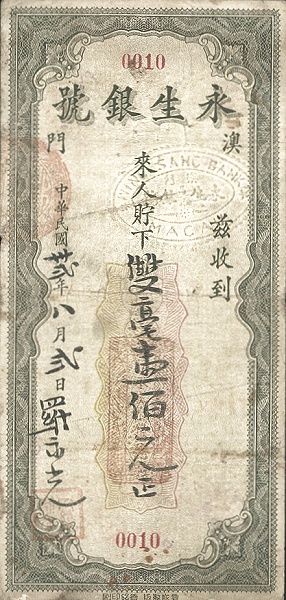 0010
永生銀號
澳門
茲收到
來人貯下雙毫壹佰元正
中華民國卅弍年八月弍日
0010